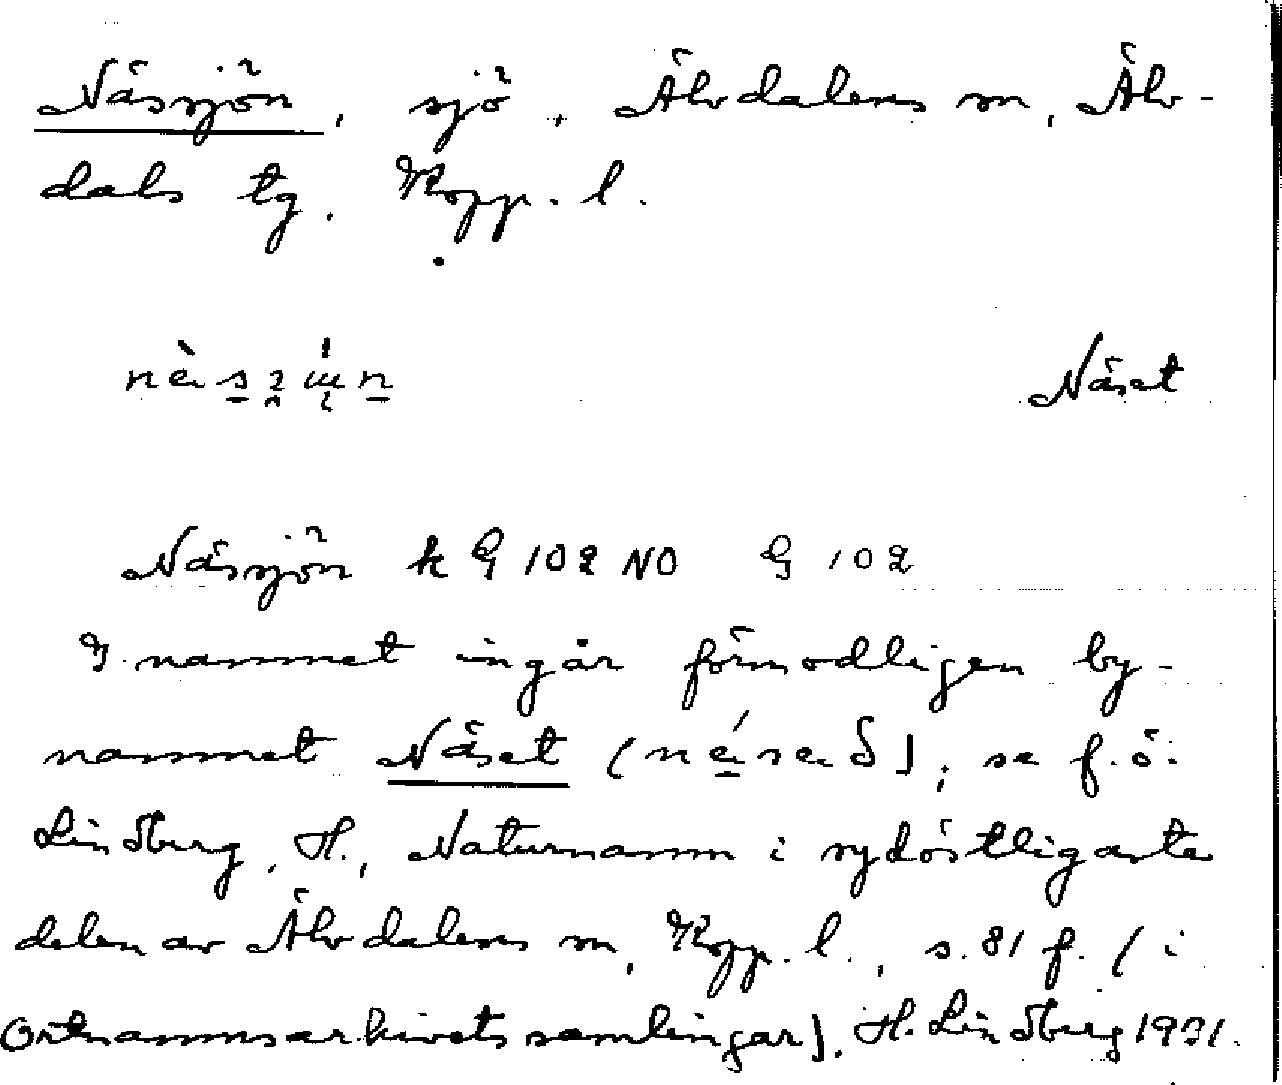 Näsjön, sjö, Älvdalens sn, Älv-
dals tg. Kopp. l.
Näset
Näsjön k G 102 NO G 102
I namnet ingår förmodligen by-
namnet Näset (), se f. ö.
Lindberg, H., Naturnamn i sydöstligaste
delen av Älvdalens sn, Kopp. l., s. 81 f. (i
Ortnamnsarkivets samlingar). H. Lindberg 1931.